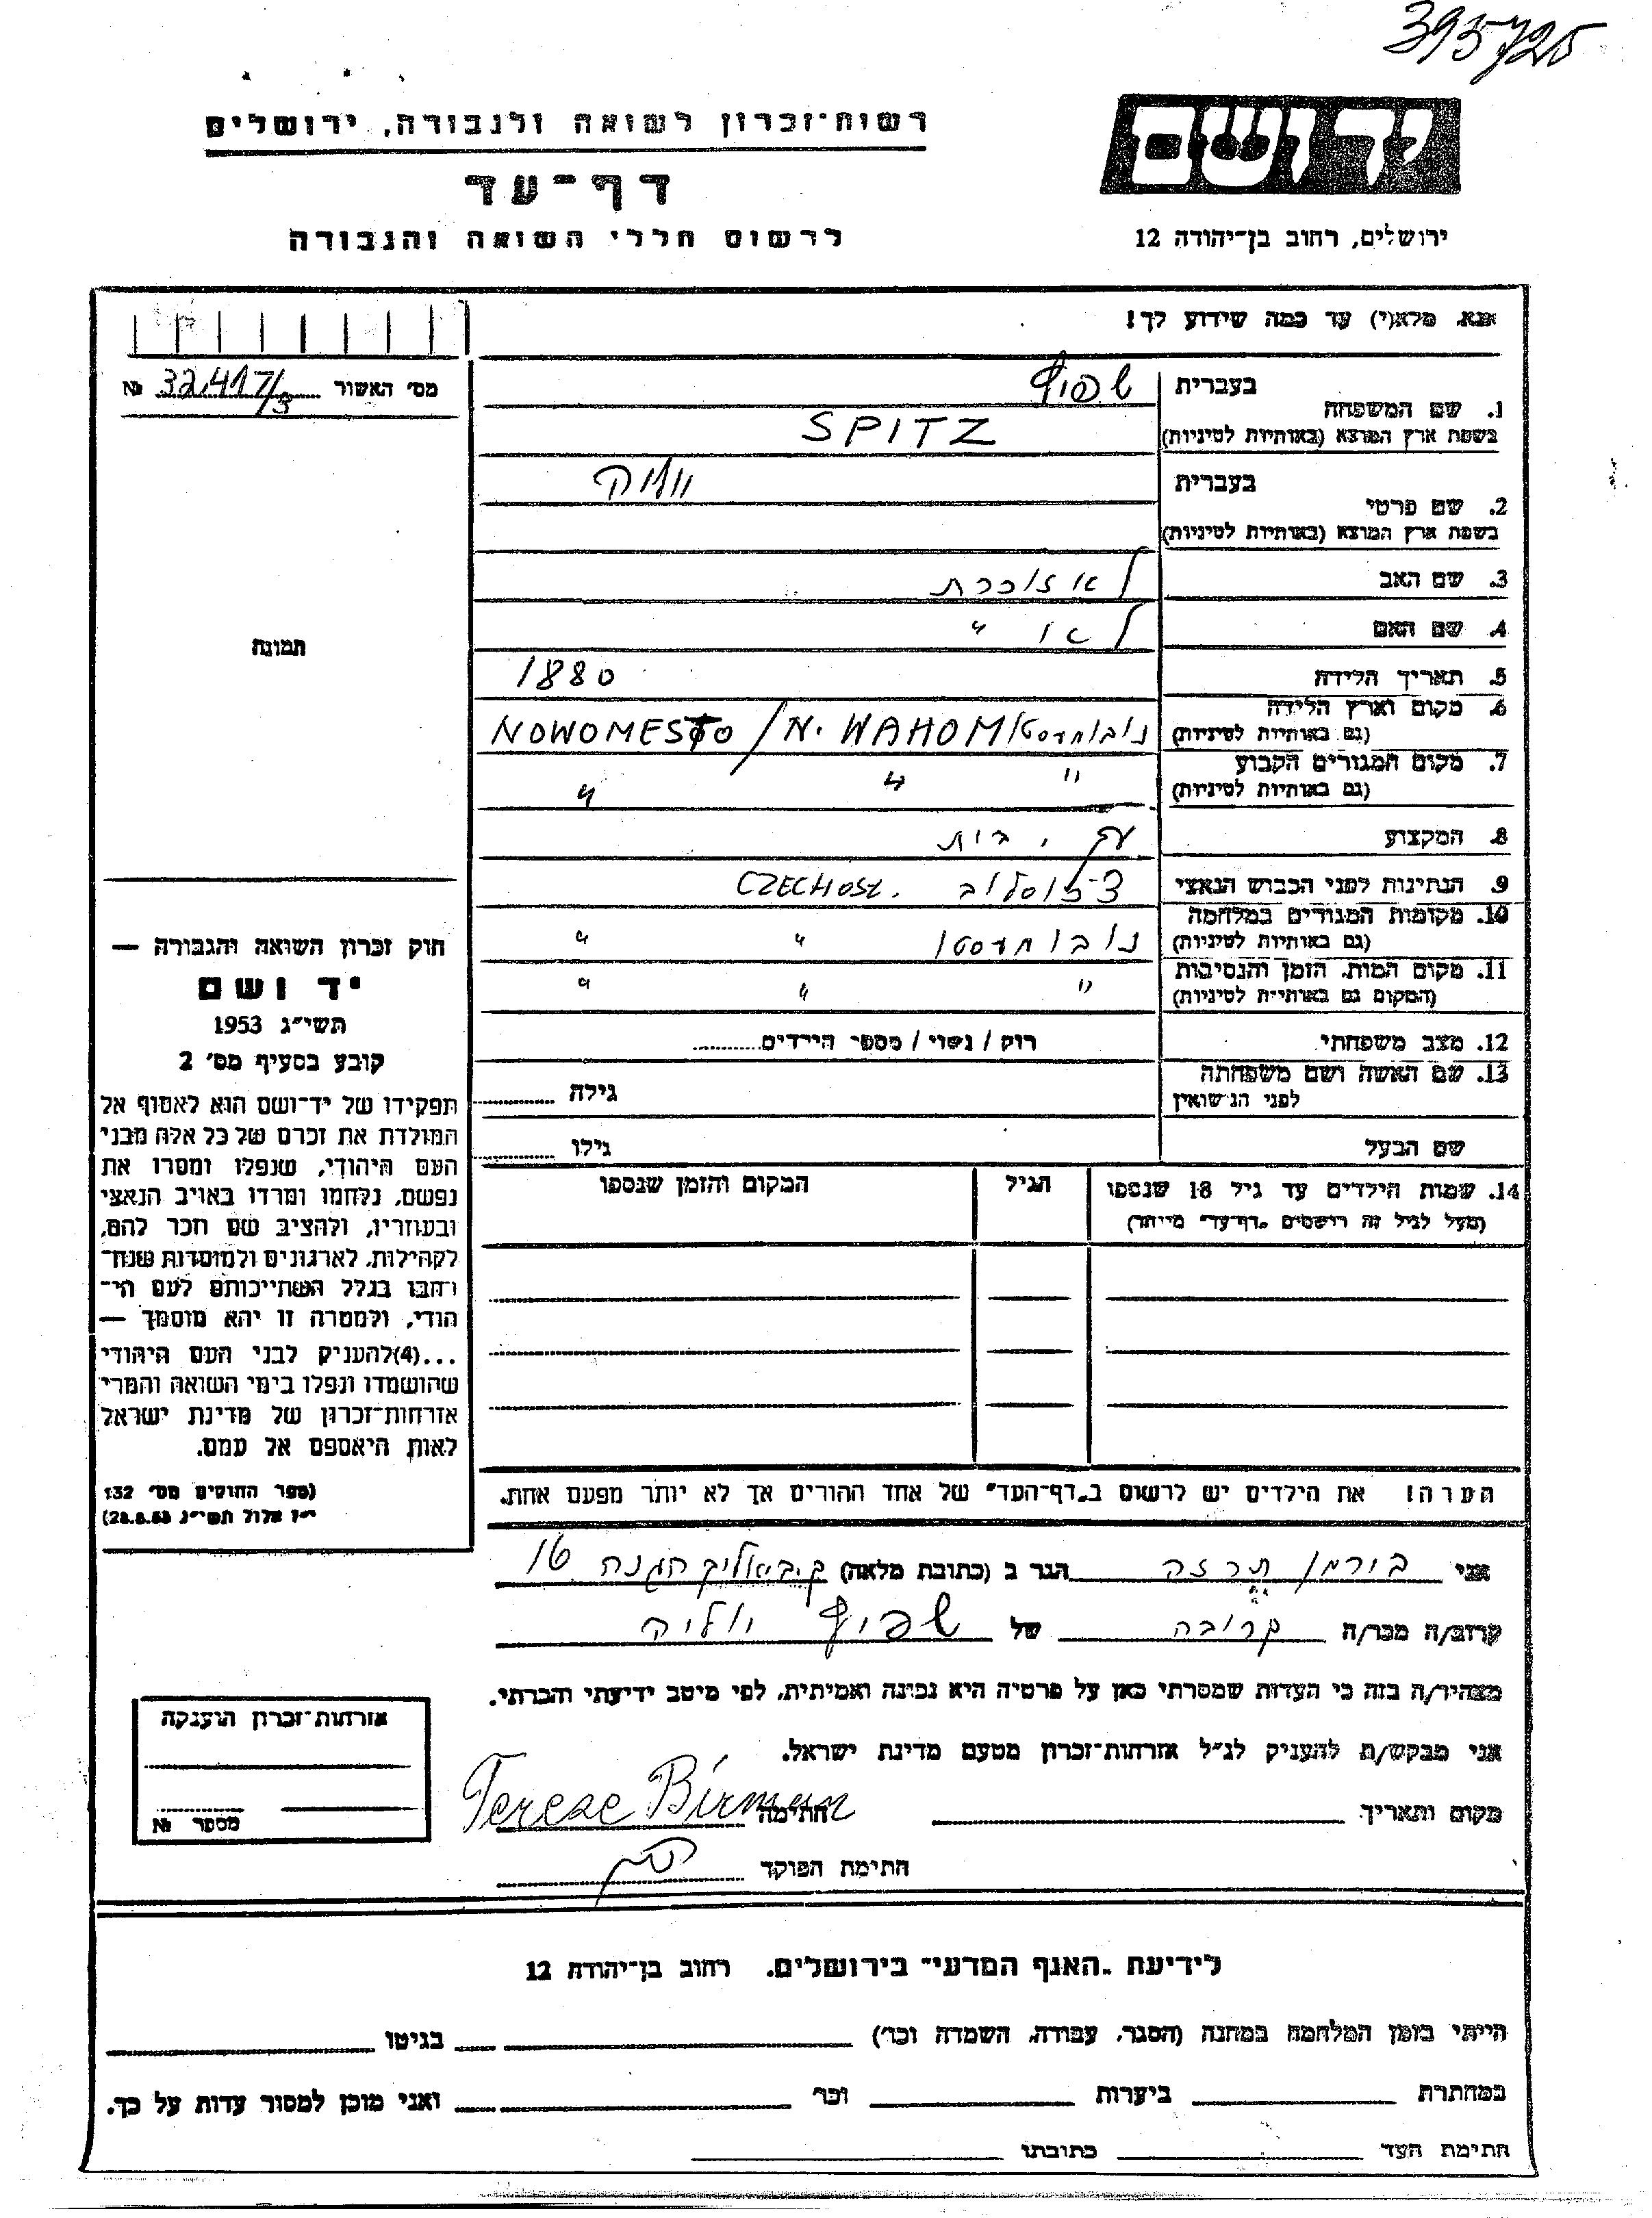 395725
רשות-זכרון לשואה ולגבורה, ירושלים
ידושם
דף-עד
לרשום חללי השואה והגבורה
ירושלים, רחוב בן-יהודה 12
אנא, מלא(י) עד כמה שידוע לך!
מס' האשור 32.417/3 №
תמונה
1. שם המשפחה בעברית שפיץ
בשפת ארץ המוצא (באותיות לטיניות) SPITZ
2. שם פרטי בעברית
בשפת ארץ המוצא (באותיות לטיניות)
3. שם האב לא זוכרת
4. שם האם לא ו "
5. תאריך הלידה 1880
6. מקום וארץ הלידה (גם באותיות לטיניות) נובומסטו NOWOMESTO / N. WAHOM
7. מקום המגורים הקבוע (גם באותיות לטיניות) " " "
8. המקצוע עק. בית
9. הנתינות לפני הכבוש הנאצי CZECHOSL.
10. מקומות המגורים במלחמה (גם באותיות לטיניות) נובומסטו " "
11. מקום המות, הזמן והנסיבות (המקום גם באותיות לטיניות) " " "
12. מצב משפחתי רוק / נשוי / מספר הילדים
13. שם האשה ושם משפחתה לפני הנישואין גילה
שם הבעל גילו
14. שמות הילדים עד גיל 18 שנספו הגיל המקום והזמן שנספו
(מעל לגיל זה רושמים "דף-עד" מיוחד)
הערה! את הילדים יש לרשום ב"דף-העד" של אחד ההורים אך לא יותר מפעם אחת.
חוק זכרון השואה והגבורה —
יד ושם
תשי"ג 1953
קובע בסעיף מס' 2
תפקידו של יד-ושם הוא לאסוף אל
המולדת את זכרם של כל אלה מבני
העם היהודי, שנפלו ומסרו את
נפשם, נלחמו ומרדו באויב הנאצי
ובעוזריו, ולהציב שם וזכר להם,
לקהילות, לארגונים ולמוסדות שנח-
רבו בגלל השתייכותם לעם הי-
הודי, ולמטרה זו יהא מוסמך —
...(4)להעניק לבני העם היהודי
שהושמדו ונפלו בימי השואה והמרי
אזרחות-זכרון של מדינת ישראל
לאות היאספם אל עמם.
(ספר החוקים מס' 132
י"ז אלול תשי"ג 28.8.53)
אני בירמן תרזה הגר ב (כתובת מלאה) ק. ביאליק הגנה 16
קרוב/ה מכר/ה קרובה של שפיץ
מצהיר/ה בזה כי העדות שמסרתי כאן על פרטיה היא נכונה ואמיתית, לפי מיטב ידיעתי והכרתי.
אני מבקש/ת להעניק לנ"ל אזרחות-זכרון מטעם מדינת ישראל.
מקום ותאריך חתימה Tereze Birman
חתימת הפוקד
אזרחות-זכרון הוענקה
מספר №
לידיעת "האגף המדעי" בירושלים, רחוב בן-יהודה 12
הייתי בזמן המלחמה במחנה (הסגר, עבודה, השמדה וכו') בגיטו
במחתרת ביערות וכו' ואני מוכן למסור עדות על כך.
חתימת העד כתובתו